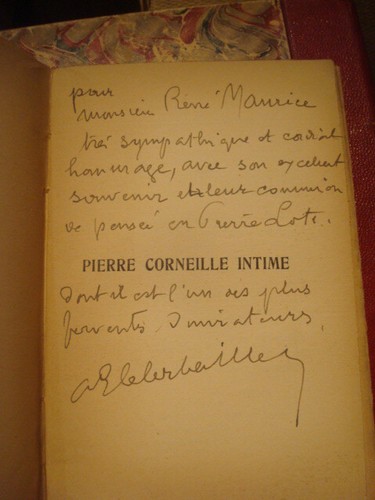 pour
monsieur René Maurice
très sympathique et cordial
hommage, avec son excellent
souvenir et leur communion
de pensée en Pierre Loti.
PIERRE CORNEILLE INTIME
Dont il est l'un des plus
fervents admirateurs,